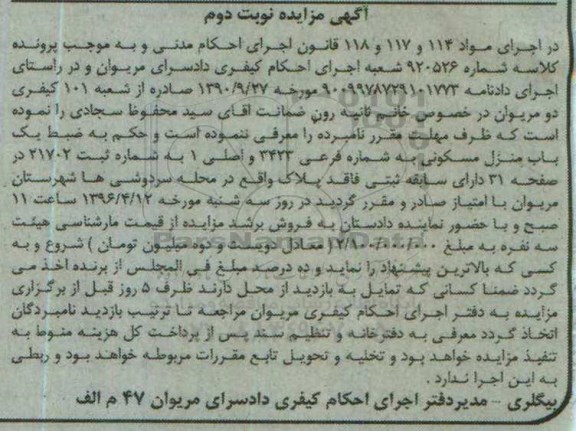 آگهی مزایده نوبت دوم
در اجرای مواد ۱۱۴ و ۱۱۷ و ۱۱۸ قانون اجرای احکام مدنی و به موجب پرونده
کلاسه شماره ۹۲۰۵۲۶ شعبه اجرای احکام کیفری دادسرای مریوان و در راستای
اجرای دادنامه ۹۰۰۹۹۷۸۷۲۹۱۰۱۷۷۳ مورخه ۱۳۹۰/۹/۲۷ صادره از شعبه ۱۰۱ کیفری
دو مریوان در خصوص خانم ثانیه رون ضمانت اقای سید محفوظ سجادی را نموده
است که ظرف مهلت مقرر نامبرده را معرفی ننموده است و حکم به ضبط یک
باب منزل مسکونی به شماره فرعی ۳۴۲۳ و اصلی ۱ به شماره ثبت ۲۱۷۰۲ در
صفحه ۳۱ دارای سابقه ثبتی فاقد پلاک واقع در محله سردوشی ها شهرستان
مریوان با امتیاز صادر و مقرر گردید در روز سه شنبه مورخه ۱۳۹۶/۴/۱۲ ساعت ۱۱
صبح و با حضور نماینده دادستان به فروش برشد مزایده از قیمت مارشناسی هیئت
سه نفره به مبلغ (معادل دویست و ده میلیون تومان) شروع و به
کسی که بالاترین پیشنهاد را نماید و ده درصد مبلغ فی المجلس از برنده اخذ می
گردد ضمنا کسانی که تمایل به بازدید از محل دارند ظرف ۵ روز قبل از برگزاری
مزایده به دفتر اجرای احکام کیفری مریوان مراجعه تا ترتیب بازدید نامبردگان
اتخاذ گردد معرفی به دفترخانه و تنظیم سند پس از پرداخت کل هزینه منوط به
تنفیذ مزایده خواهد بود و تخلیه و تحویل تابع مقررات مربوطه خواهد بود و ربطی
به این اجرا ندارد .
بیگلری - مدیردفتر اجرای احکام کیفری دادسرای مریوان ۴۷ م الف